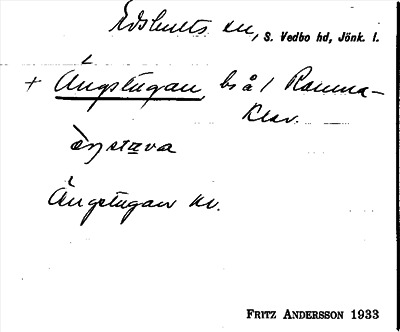 Edshults sn, S. Vedbo hd, Jönk. l.
+ Ängstugan, bs å 1 Ramma-
klev.
ὰŋstava
Ängstugan kv.
FRITZ ANDERSSON 1933